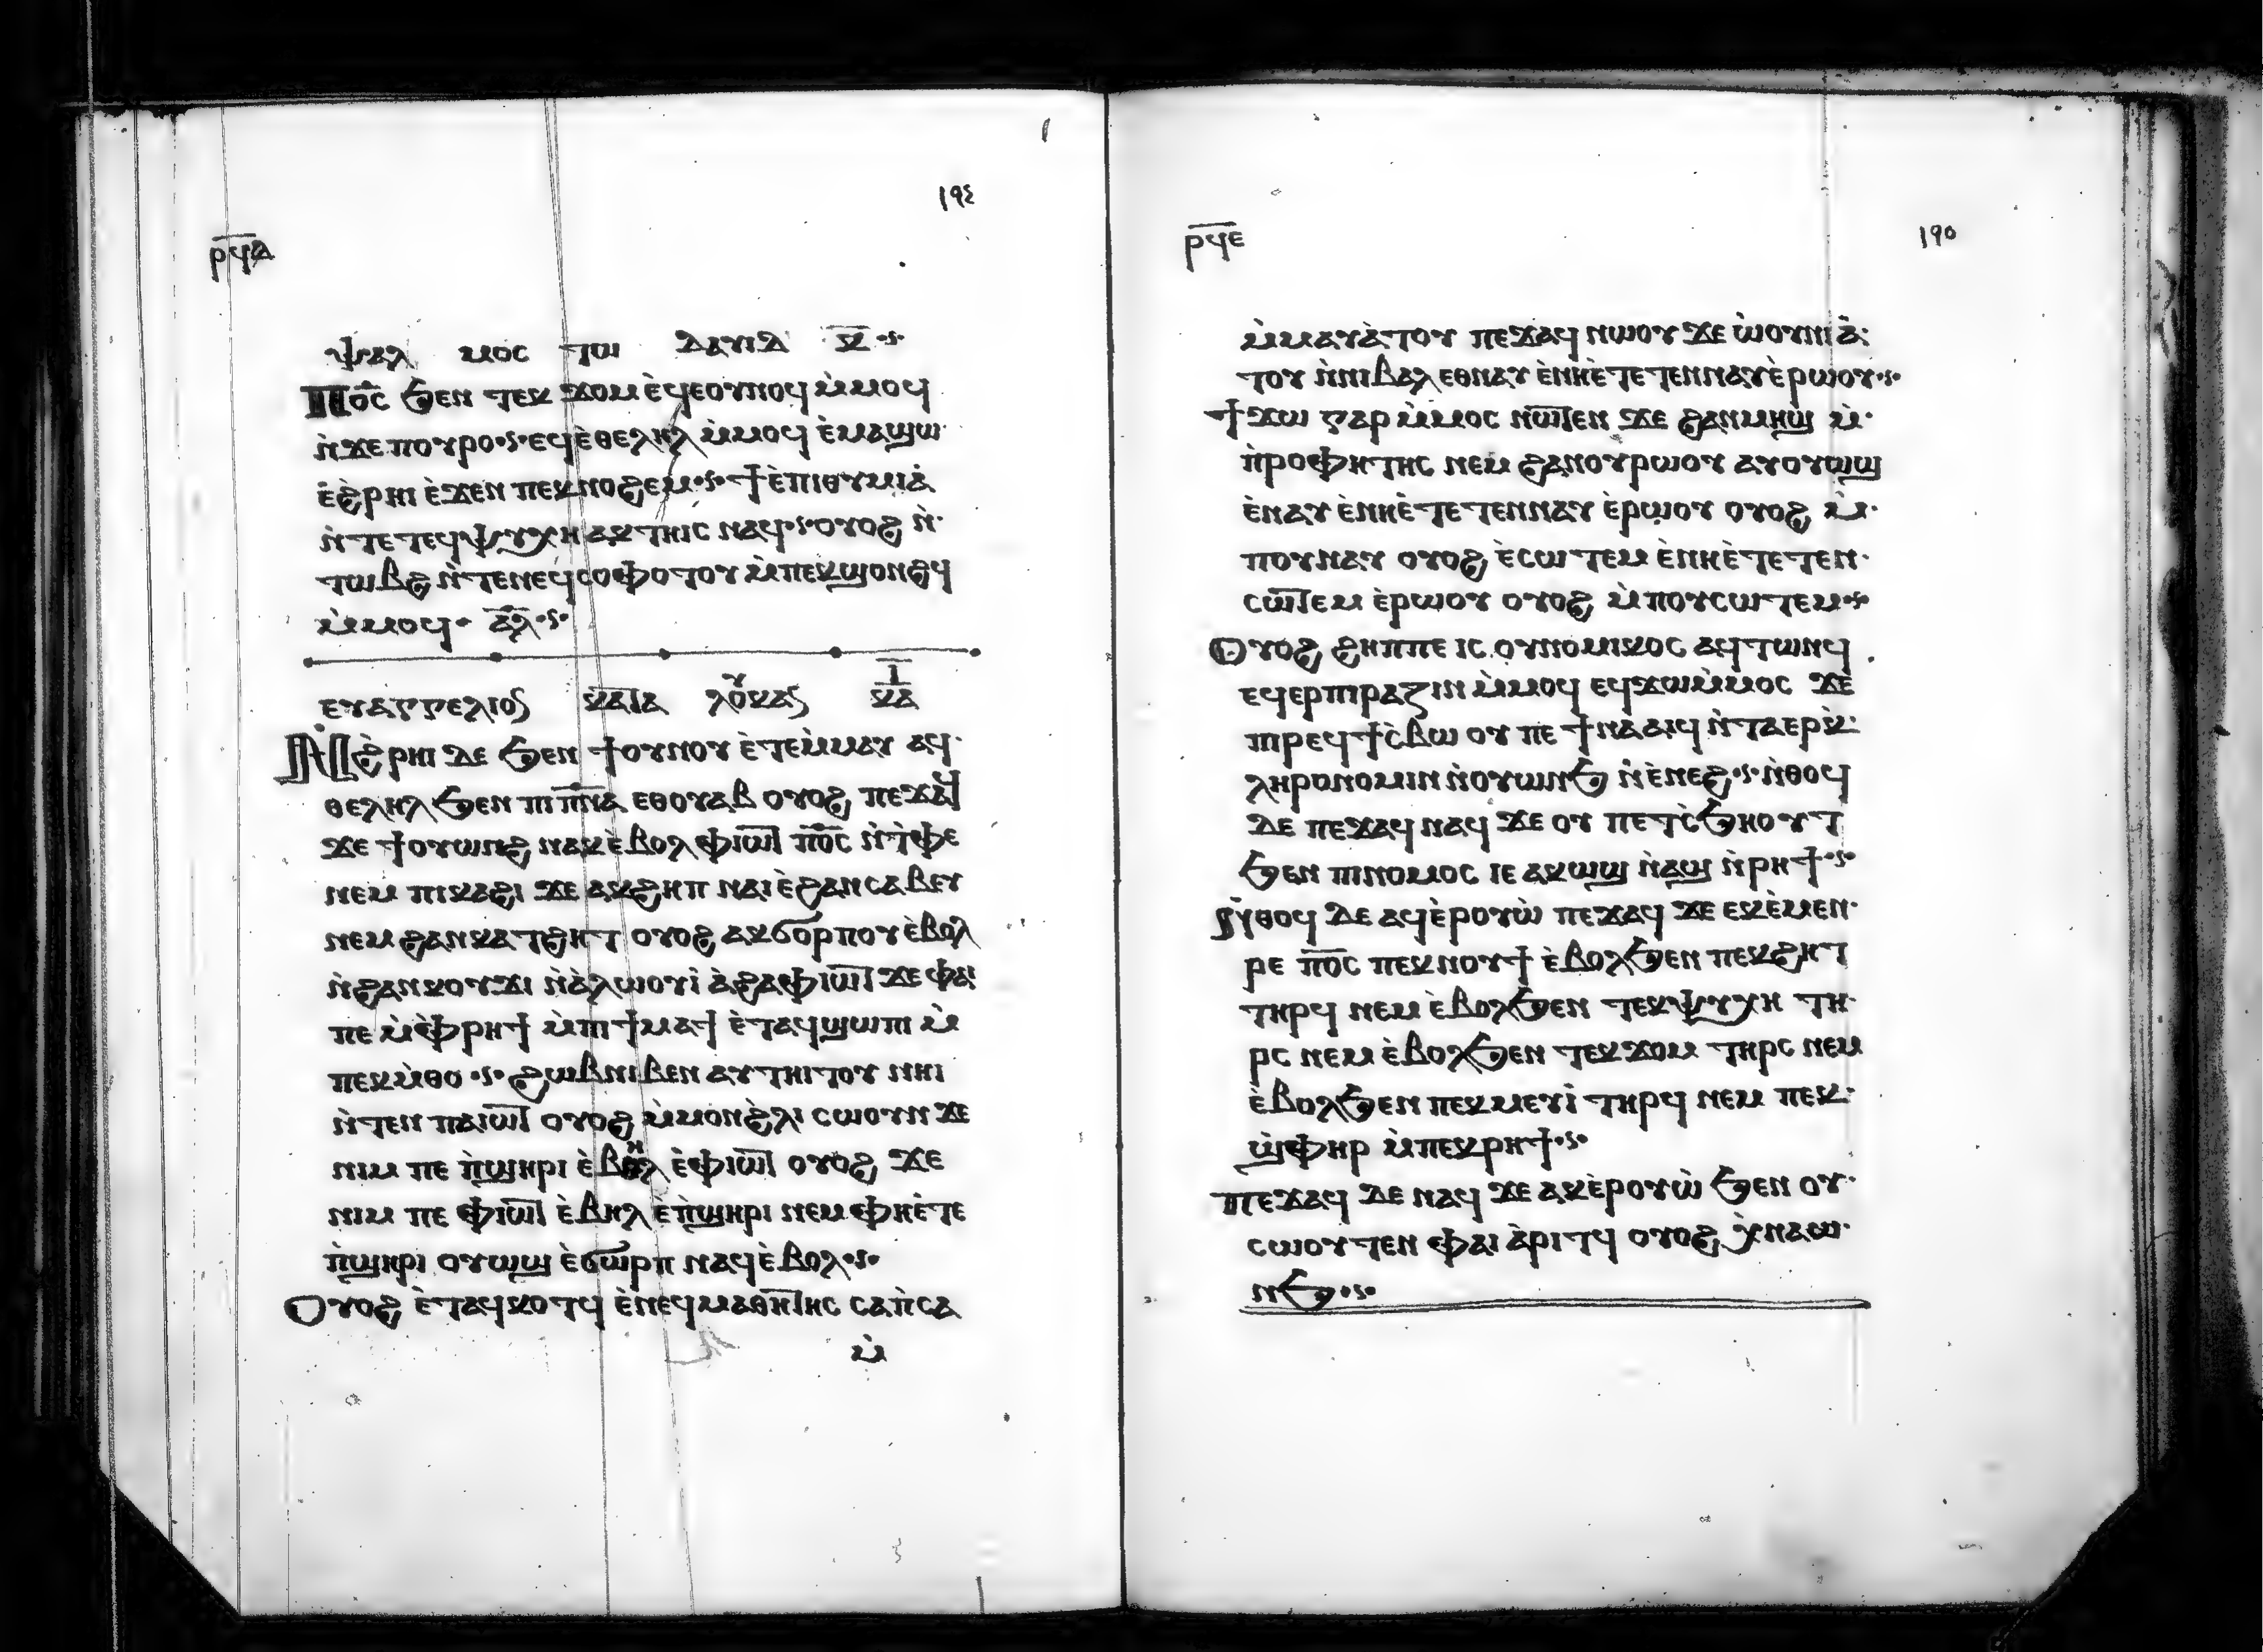 ١٩٤
ⲣϥⲇ
ⲯⲁⲗ ⲙⲟⲥ ⲧⲱ ⲇⲁⲩⲓⲇ ⲕ̅
Ⲡⲟ̅ⲥ ϧⲉⲛ ⲧⲉⲕ ϫⲟⲙ ⲉ̀ϥⲉⲟⲩⲛⲟϥ ⲙ̀ⲙⲟϥ
ⲛ̀ϫⲉ ⲡⲟⲩⲣⲟ·ⲋ· ⲉϥⲉ̀ⲑⲉⲗⲏⲗ ⲙ̀ⲙⲟϥ ⲉ̀ⲙⲁϣⲱ
ⲉ̀ϩ̀ⲣⲏⲓ ⲉ̀ϫⲉⲛ ⲡⲉⲕⲛⲟϩⲉⲙ·ⲋ· ϯⲉ̀ⲡⲓⲑⲩⲙⲓⲁ̀
ⲛ̀ⲧⲉ ⲧⲉϥⲯⲩⲭⲏ ⲁⲕⲧⲏⲓⲥ ⲛⲁϥ·ⲋ· ⲟⲩⲟϩ ⲛ̀·
ⲧⲱⲃϩ ⲛ̀ⲧⲉⲛⲉϥⲥⲟⲫⲟⲧⲟⲩ ⲙ̀ⲡⲉⲕϣⲟⲛϩϥ
ⲙ̀ⲙⲟϥ· ⲁ̅ⲗ̅·ⲋ·
ⲉⲩⲁⲅⲅⲉⲗⲓⲟⲥ ⲕⲁⲧⲁ ⲗⲟⲩⲕⲁⲥ ⲓ̅ ⲕ̅ⲁ̅
Ⲛ̀ϩ̀ⲣⲏⲓ ⲇⲉ ϧⲉⲛ ϯⲟⲩⲛⲟⲩ ⲉ̀ⲧⲉⲙ̀ⲙⲁⲩ ⲁϥ·
ⲑⲉⲗⲏⲗ ϧⲉⲛ ⲡⲓⲡ̅ⲛ̅ⲁ̅ ⲉⲑⲟⲩⲁⲃ ⲟⲩⲟϩ ⲡⲉϫⲁϥ
ϫⲉ ϯⲟⲩⲱⲛϩ ⲛⲁⲕ ⲉ̀ⲃⲟⲗ ⲫⲓⲱⲧ ⲡⲟ̅ⲥ ⲛ̀ⲧ̀ⲫⲉ
ⲛⲉⲙ ⲡⲓⲕⲁϩⲓ ϫⲉ ⲁⲕϩⲏⲡ ⲛⲁⲓ ⲉ̀ϩⲁⲛⲥⲁⲃⲉⲩ
ⲛⲉⲙ ϩⲁⲛⲕⲁⲧϩⲏⲧ ⲟⲩⲟϩ ⲁⲕϭⲟⲣⲡⲟⲩ ⲉ̀ⲃⲟⲗ
ⲛ̀ϩⲁⲛⲕⲟⲩϫⲓ ⲛ̀ⲁ̀ⲗⲱⲟⲩⲓ̀ ⲁ̀ϩⲁ ⲫⲓⲱⲧ ϫⲉ ⲫⲁⲓ
ⲡⲉ ⲙ̀ⲫ̀ⲣⲏϯ ⲙ̀ⲡⲓϯⲙⲁϯ ⲉ̀ⲧⲁϥϣⲱⲡⲓ ⲙ̀
ⲡⲉⲕⲙ̀ⲑⲟ·ⲋ· ϩⲱⲃ ⲛⲓⲃⲉⲛ ⲁⲩⲧⲏⲓⲧⲟⲩ ⲛⲏⲓ
ⲛ̀ⲧⲉⲛ ⲡⲁⲓⲱⲧ ⲟⲩⲟϩ ⲙ̀ⲙⲟⲛϩ̀ⲗⲓ ⲥⲱⲟⲩⲛ ϫⲉ
ⲛⲓⲙ ⲡⲉ ⲡ̀ϣⲏⲣⲓ ⲉ̀ⲃⲏⲗ ⲉ̀ⲫⲓⲱⲧ ⲟⲩⲟϩ ϫⲉ
ⲛⲓⲙ ⲡⲉ ⲫⲓⲱⲧ ⲉ̀ⲃⲏⲗ ⲉ̀ⲡ̀ϣⲏⲣⲓ ⲛⲉⲙ ⲫⲏⲉ̀ⲧⲉ
ⲡ̀ϣⲏⲣⲓ ⲟⲩⲱϣ ⲉ̀ϭⲱⲣⲡ ⲛⲁϥ ⲉ̀ⲃⲟⲗ·ⲋ·
Ⲟⲩⲟϩ ⲉ̀ⲧⲁϥⲕⲟⲧϥ ⲉ̀ⲛⲉϥⲙⲁⲑⲏⲧⲏⲥ ⲥⲁⲡ̀ⲥⲁ
ⲙ̀
١٩٥
ⲣϥⲉ
ⲙ̀ⲙⲁⲩⲁ̀ⲧⲟⲩ ⲡⲉϫⲁϥ ⲛⲱⲟⲩ ϫⲉ ⲱ̀ⲟⲩⲛⲓⲁ̀·
ⲧⲟⲩ ⲛ̀ⲛⲓⲃⲁⲗ ⲉⲑⲛⲁⲩ ⲉ̀ⲛⲏⲉ̀ⲧⲉⲧⲉⲛⲛⲁⲩ ⲉ̀ⲣⲱⲟⲩ·ⲋ·
ϯϫⲱ ⲅⲁⲣ ⲙ̀ⲙⲟⲥ ⲛⲱⲧⲉⲛ ϫⲉ ϩⲁⲛⲙⲏϣ ⲙ̀·
ⲡ̀ⲣⲟⲫⲏⲧⲏⲥ ⲛⲉⲙ ϩⲁⲛⲟⲩⲣⲱⲟⲩ ⲁⲩⲟⲩⲱϣ
ⲉ̀ⲛⲁⲩ ⲉ̀ⲛⲏⲉ̀ⲧⲉⲧⲉⲛⲛⲁⲩ ⲉ̀ⲣⲱⲟⲩ ⲟⲩⲟϩ ⲙ̀·
ⲡⲟⲩⲛⲁⲩ ⲟⲩⲟϩ ⲉ̀ⲥⲱⲧⲉⲙ ⲉ̀ⲛⲏⲉ̀ⲧⲉⲧⲉⲛ·
ⲥⲱⲧⲉⲙ ⲉ̀ⲣⲱⲟⲩ ⲟⲩⲟϩ ⲙ̀ⲡⲟⲩⲥⲱⲧⲉⲙ·ⲋ·
Ⲟⲩⲟϩ ϩⲏⲡⲡⲉ ⲓⲥ ⲟⲩⲛⲟⲙⲓⲕⲟⲥ ⲁϥⲧⲱⲛϥ
ⲉϥⲉⲣⲡⲓⲣⲁⲍⲓⲛ ⲙ̀ⲙⲟϥ ⲉϥϫⲱⲙ̀ⲙⲟⲥ ϫⲉ
ⲡⲓⲣⲉϥϯⲥ̀ⲃⲱ ⲟⲩ ⲡⲉ ϯⲛⲁⲁⲓϥ ⲛ̀ⲧⲁⲉⲣⲕ̀·
ⲗⲏⲣⲟⲛⲟⲙⲓⲛ ⲛ̀ⲟⲩⲱⲛϧ ⲛ̀ⲉ̀ⲛⲉϩ·ⲋ· ⲛ̀ⲑⲟϥ
ⲇⲉ ⲡⲉϫⲁϥ ⲛⲁϥ ϫⲉ ⲟⲩ ⲡⲉⲧⲥ̀ϧⲏⲟⲩⲧ
ϧⲉⲛ ⲡⲓⲛⲟⲙⲟⲥ ⲓⲉ ⲁⲕⲱϣ ⲛ̀ⲁϣ ⲛ̀ⲣⲏϯ·ⲋ·
Ⲛ̀ⲑⲟϥ ⲇⲉ ⲁϥⲉ̀ⲣⲟⲩⲱ̀ ⲡⲉϫⲁϥ ϫⲉ ⲉⲕⲉ̀ⲙⲉⲛ·
ⲣⲉ ⲡⲟ̅ⲥ ⲡⲉⲕⲛⲟⲩϯ ⲉ̀ⲃⲟⲗϧⲉⲛ ⲡⲉⲕϩⲏⲧ
ⲧⲏⲣϥ ⲛⲉⲙ ⲉ̀ⲃⲟⲗϧⲉⲛ ⲧⲉⲕⲯⲩⲭⲏ ⲧⲏ·
ⲣⲥ ⲛⲉⲙ ⲉ̀ⲃⲟⲗϧⲉⲛ ⲧⲉⲕϫⲟⲙ ⲧⲏⲣⲥ ⲛⲉⲙ
ⲉ̀ⲃⲟⲗϧⲉⲛ ⲡⲉⲕⲙⲉⲩⲓ̀ ⲧⲏⲣϥ ⲛⲉⲙ ⲡⲉⲕ·
ϣ̀ⲫⲏⲣ ⲙ̀ⲡⲉⲕⲣⲏϯ·ⲋ·
Ⲡⲉϫⲁϥ ⲇⲉ ⲛⲁϥ ϫⲉ ⲁⲕⲉ̀ⲣⲟⲩⲱ̀ ϧⲉⲛ ⲟⲩ·
ⲥⲱⲟⲩⲧⲉⲛ ⲫⲁⲓ ⲁ̀ⲣⲓⲧϥ ⲟⲩⲟϩ ⲭ̀ⲛⲁⲱ·
ⲛϧ·ⲋ·